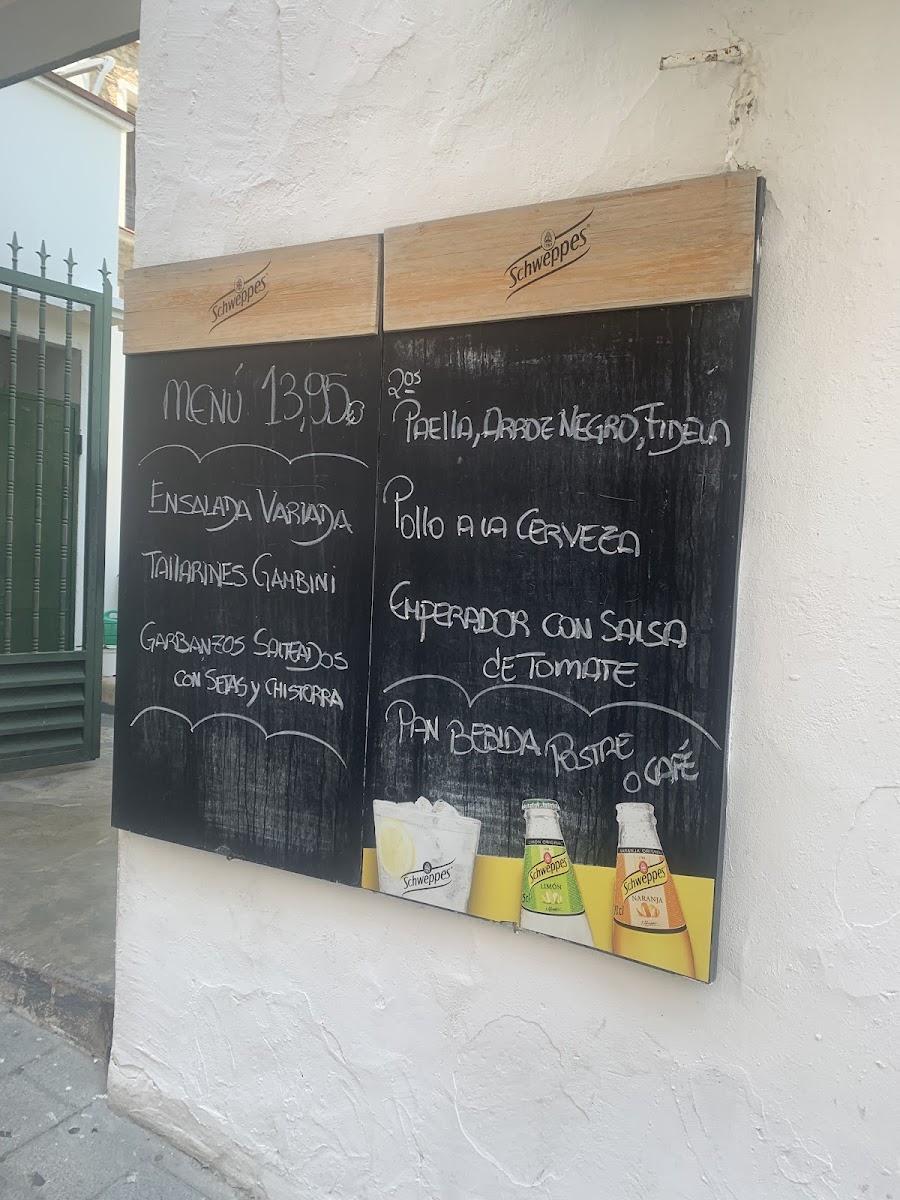 Schweppes
MENÚ 13,95€
ENSALADA VARIADA
TALLARINES GAMBINI
GARBANZOS SALTEADOS
CON SETAS y CHISTORRA
Schweppes
2os
PAELLA, ARROZ NEGRO, FIDEUA
POLLO A LA CERVEZA
EMPERADOR CON SALSA
DE TOMATE
PAN BEBIDA POSTRE
O CAFÉ
Schweppes
Schweppes
LIMÓN
Schweppes
NARANJA